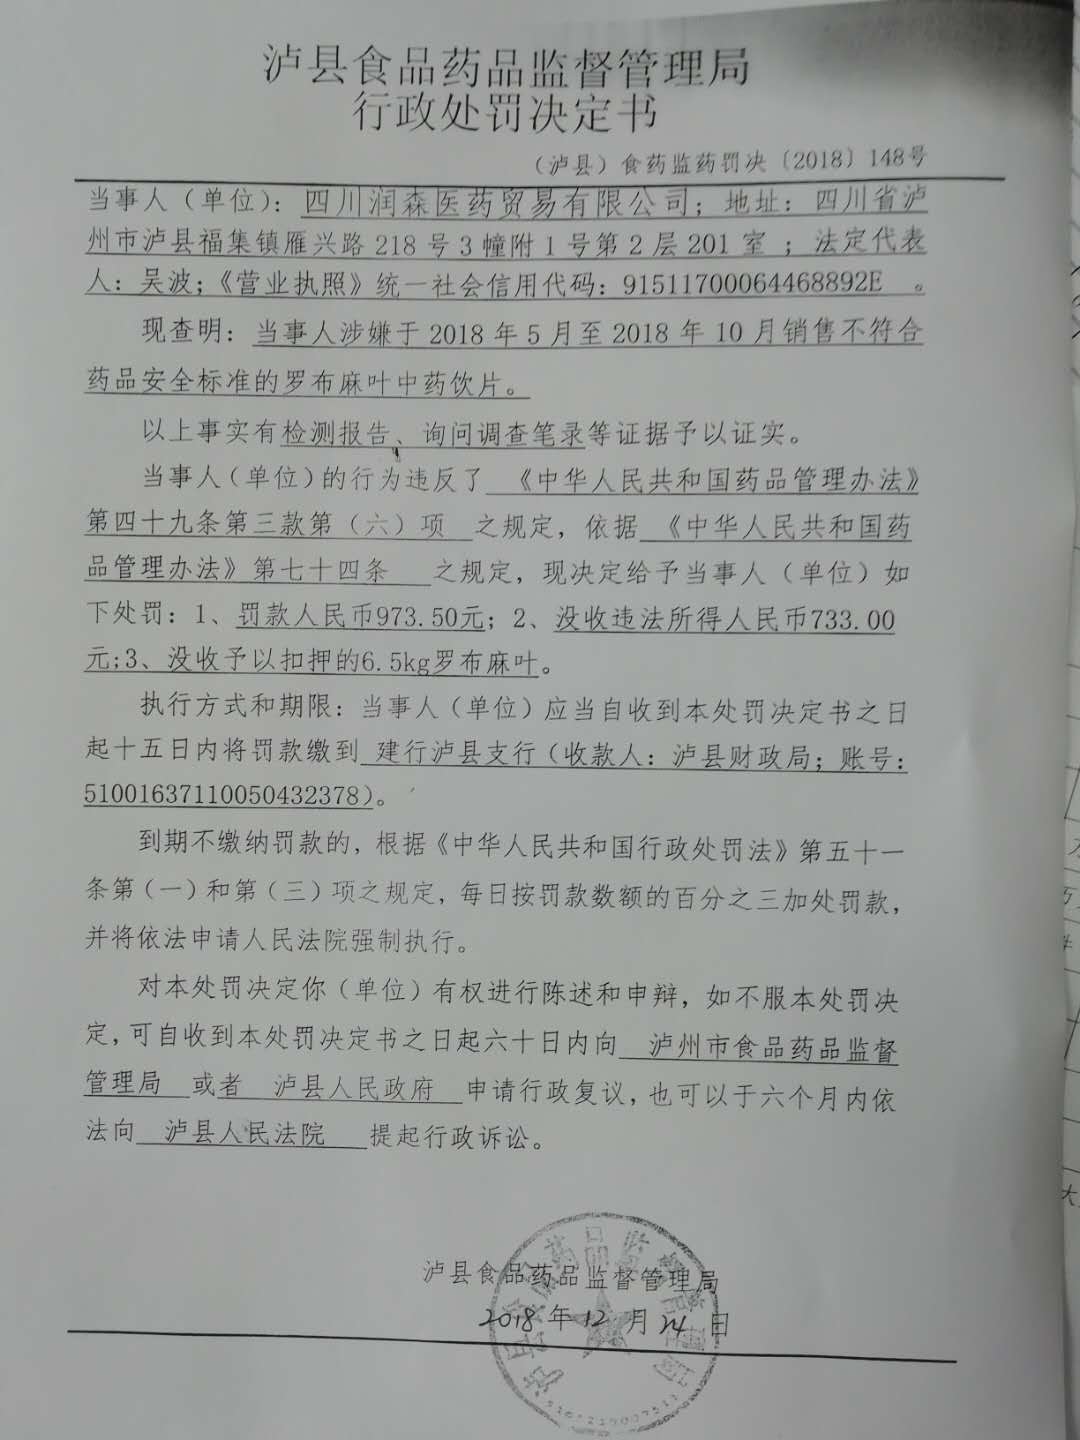 泸县食品药品监督管理局
行政处罚决定书
（泸县）食药监药罚决〔2018〕148号
当事人（单位）：四川润森医药贸易有限公司；地址：四川省泸
州市泸县福集镇雁兴路218号3幢附1号第2层201室 ；法定代表
人：吴波；《营业执照》统一社会信用代码：91511700064468892E 。
现查明：当事人涉嫌于2018年5月至2018年10月销售不符合
药品安全标准的罗布麻叶中药饮片。
以上事实有检测报告、询问调查笔录等证据予以证实。
当事人（单位）的行为违反了 《中华人民共和国药品管理办法》
第四十九条第三款第（六）项 之规定，依据 《中华人民共和国药
品管理办法》第七十四条 之规定，现决定给予当事人（单位）如
下处罚：1、罚款人民币973.50元；2、没收违法所得人民币733.00
元;3、没收予以扣押的6.5kg罗布麻叶。
执行方式和期限：当事人（单位）应当自收到本处罚决定书之日
起十五日内将罚款缴到 建行泸县支行（收款人：泸县财政局；账号：
51001637110050432378）。
到期不缴纳罚款的，根据《中华人民共和国行政处罚法》第五十一
条第（一）和第（三）项之规定，每日按罚款数额的百分之三加处罚款，
并将依法申请人民法院强制执行。
对本处罚决定你（单位）有权进行陈述和申辩，如不服本处罚决
定，可自收到本处罚决定书之日起六十日内向 泸州市食品药品监督
管理局 或者 泸县人民政府 申请行政复议，也可以于六个月内依
法向 泸县人民法院 提起行政诉讼。
泸县食品药品监督管理局
2018年12月24日
泸县食品药品监督管理局